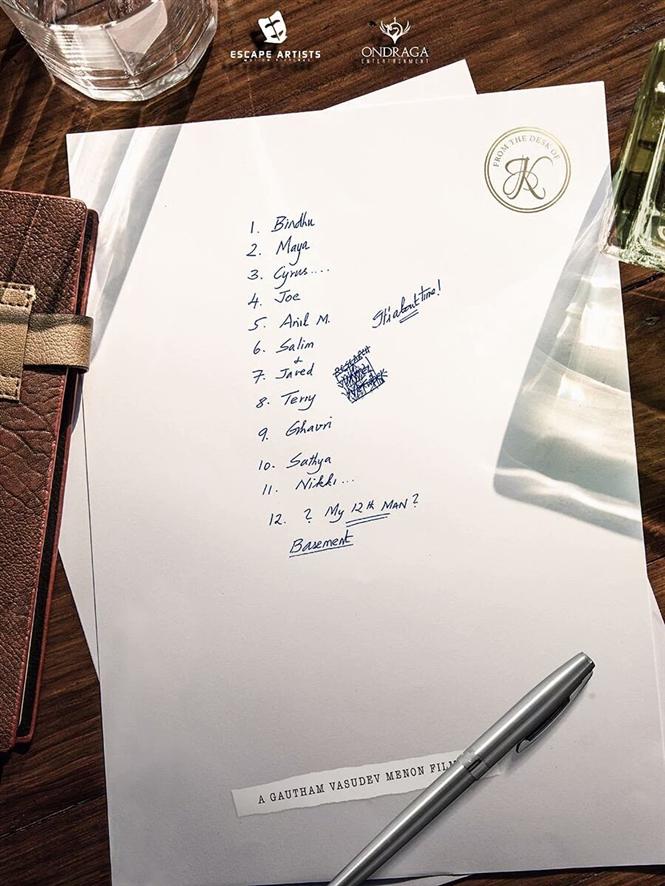 ESCAPE ARTISTS
MOTION PICTURES
ONDRAGA
ENTERTAINMENT
FROM THE DESK OF
JK
1. Bindhu
2. Maya
3. Cyrus....
4. Joe
5. Anil M.
It's about time!
6. Salim
&
7. Javed
RESEARCH
8. Terry
9. Ghauri
10. Sathya
11. Nikki...
12. ? My 12th MAN?
Basement
A GAUTHAM VASUDEV MENON FILM